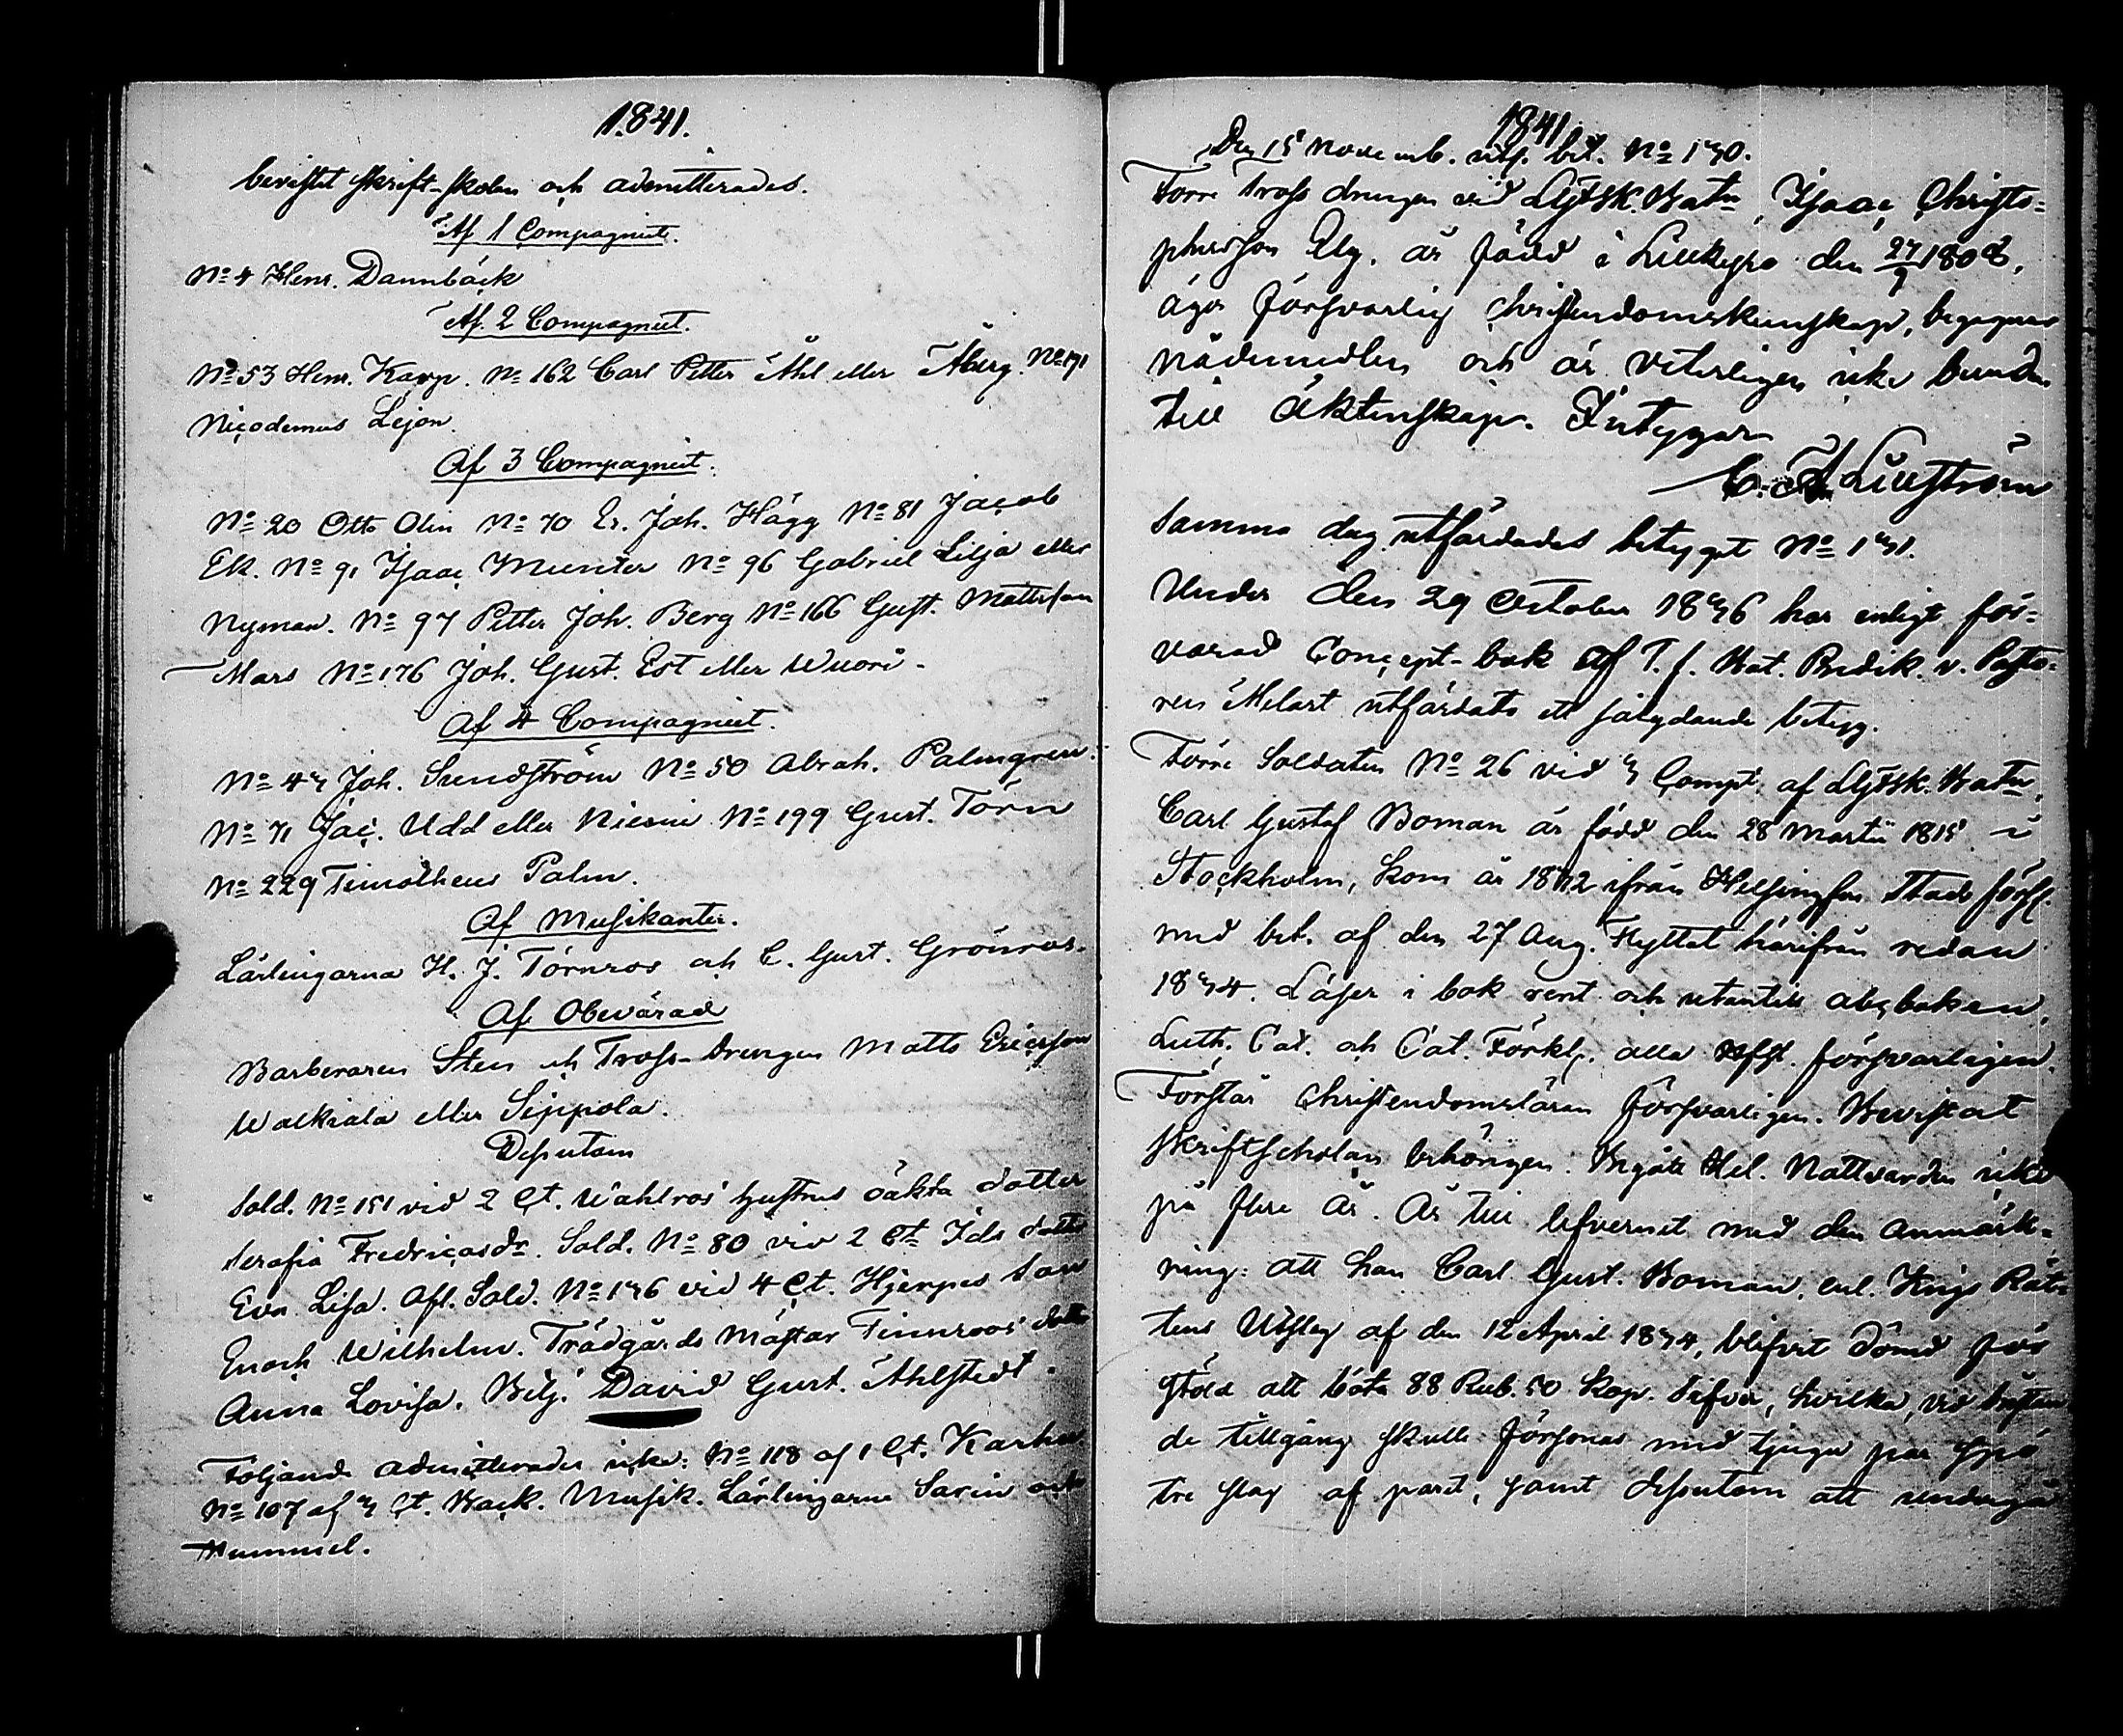 1841.
bevistat skrift-skolan och admitterades.
Af 1 Compagniet.
No 4 Henr. Dannbäck
Af. 2 Compagniet.
No 53 Henr. Karp. No 162 Carl Petter Åhl eller Åberg. No 171
Nicodemus Lejon.
Af 3 Compagniet.
No 20 Otto Olin No 70 Er. Joh. Hägg No 81 Jacob
Ek. No 91 Isaac Munter No 96 Gabriel Lilja eller
Nyman. No 97 Petter Joh. Berg No 166 Gust. Mattsson
Mars No 176 Joh. Gust. Est eller Wuori.
Af 4 Compagniet.
No 43 Joh. Sundström No 50 Abrah. Palmgren.
No 71 Jac. Udd eller Niemi No 199 Gust. Törn
No 229 Timotheus Palm.
Af Musikanter.
Lärlingarna H. J. Törnros och C. Gust. Grönros.
Af Obevärad
Barberaren Sten och Tross-drengen Matts Ericsson
Walkiala eller Sippola.
Desutom
Sold. No 151 vid 2 Ct. Wahlros' hustrus oäkta dotter
Serafia Fredricasdr. Sold. No 80 vid 2 Ct. Ids dotter
Eva Lisa. Afl. Sold. No 136 vid 4 Ct. Hjerpes son
Enoch Wilhelm. Trädgårds Mästar Finnroos' dotter
Anna Lovisa. Bilj. David Gust. Åhlstedt.
Följande admitterades icke: No 118 af 1 Ct. Karhu
No 107 af 3 Ct. Back. Musik. Lärlingarne Sarin och
Hummel.
1841
Den 15 Novemb. utf. bet. No 130.
Förre Trossdrengen vid Lifsk. Batn, Isaac Christo-
phersson Elg, är född i Lillkyro den 27/9 1808,
äger försvarlig christendomskunskap, begagnar
nådemedlen och är veterligen icke bunden
till äktenskap. Intygar
C. A. Lillström
Samma dag utfärdades betyget No 131.
Under den 29 October 1836 har enligt för-
varad Concept-bok af T. f. Bat. Predik. v. Pasto-
ren Melart utfärdats ett sålydande betyg.
Förre Soldaten No 26 vid 3 Compt. af Lifsk. Batn,
Carl Gustaf Boman är född den 28 Martii 1815 i
Stockholm, kom år 1832 ifrån Helsingfors Stads förs.
med bet. af den 27 Aug. Flyttat härifrån redan
1834. Läser i bok rent och utantill abcboken,
Luth. Cat. och Cat. Förkl. alla försvarligen.
Förstår Christendomsläran försvarligen. Bevistat
skriftscholan behörigen. Begått Hel. Nattvarden icke
på flere år. Är till lefvernet med den anmärk-
ning: att han Carl Gust. Boman, enl. Krigs Rät-
tens Utslag af den 12 April 1834, blifvit dömd för
stöld att böta 88 Rub. 50 Kop. Silfver, hvilka, vid bristan
de tillgång skulle försonas med tjugu par spö
tre slag af paret, samt desutom att undergå